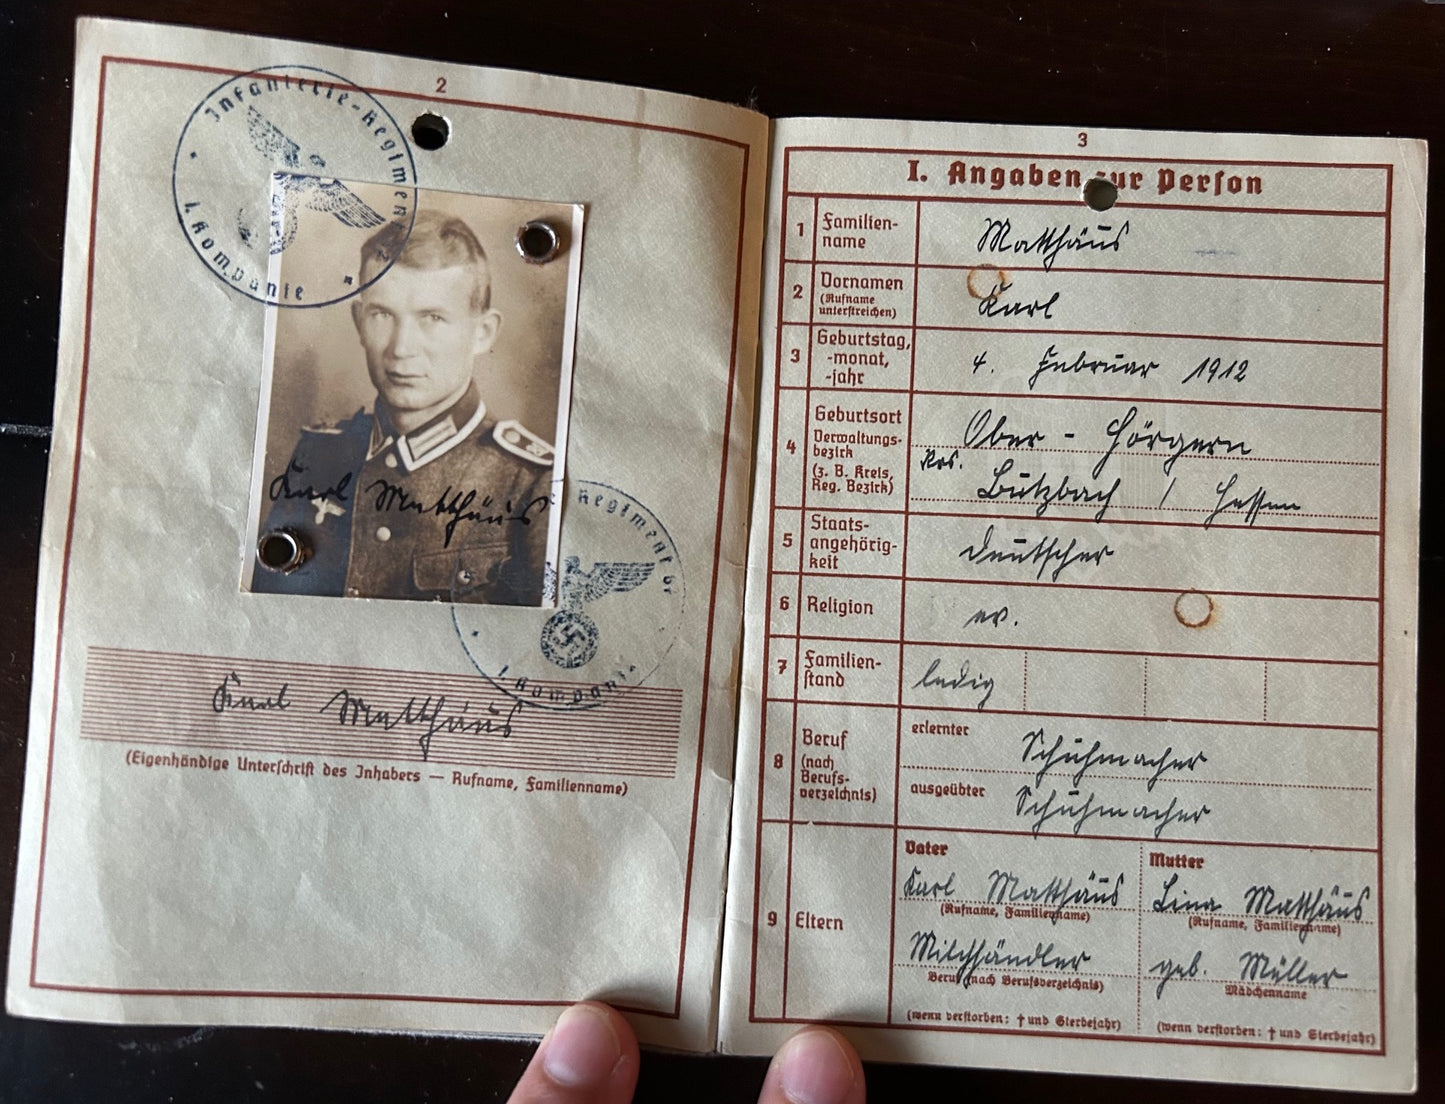 2
Infanterie-Regiment
1. Kompanie
Karl Matthäus
Regiment
1. Kompanie
Karl Matthäus
(Eigenhändige Unterschrift des Inhabers — Rufname, Familienname)
3
I. Angaben zur Person
1 Familien-
name
Matthäus
2 Vornamen
(Rufname
unterstreichen)
Karl
3 Geburtstag,
-monat,
-jahr
4. Februar 1912
4 Geburtsort
Verwaltungs-
bezirk
(z. B. Kreis,
Reg. Bezirk)
Ober - Hörgern
Krs.
Butzbach / Hessen
5 Staats-
angehörig-
keit
Deutscher
6 Religion
ev.
7 Familien-
stand
ledig
8 Beruf
(nach
Berufs-
verzeichnis)
erlernter
Schuhmacher
ausgeübter
Schuhmacher
9 Eltern
Vater
Karl Matthäus
(Rufname, Familienname)
Milchhändler
Beruf (nach Berufsverzeichnis)
(wenn verstorben: † und Sterbejahr)
Mutter
Lina Matthäus
(Rufname, Familienname)
geb. Müller
Mädchenname
(wenn verstorben: † und Sterbejahr)